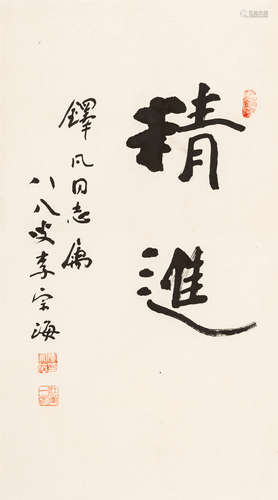 精進
鐸风同志属
八八叟李宗海